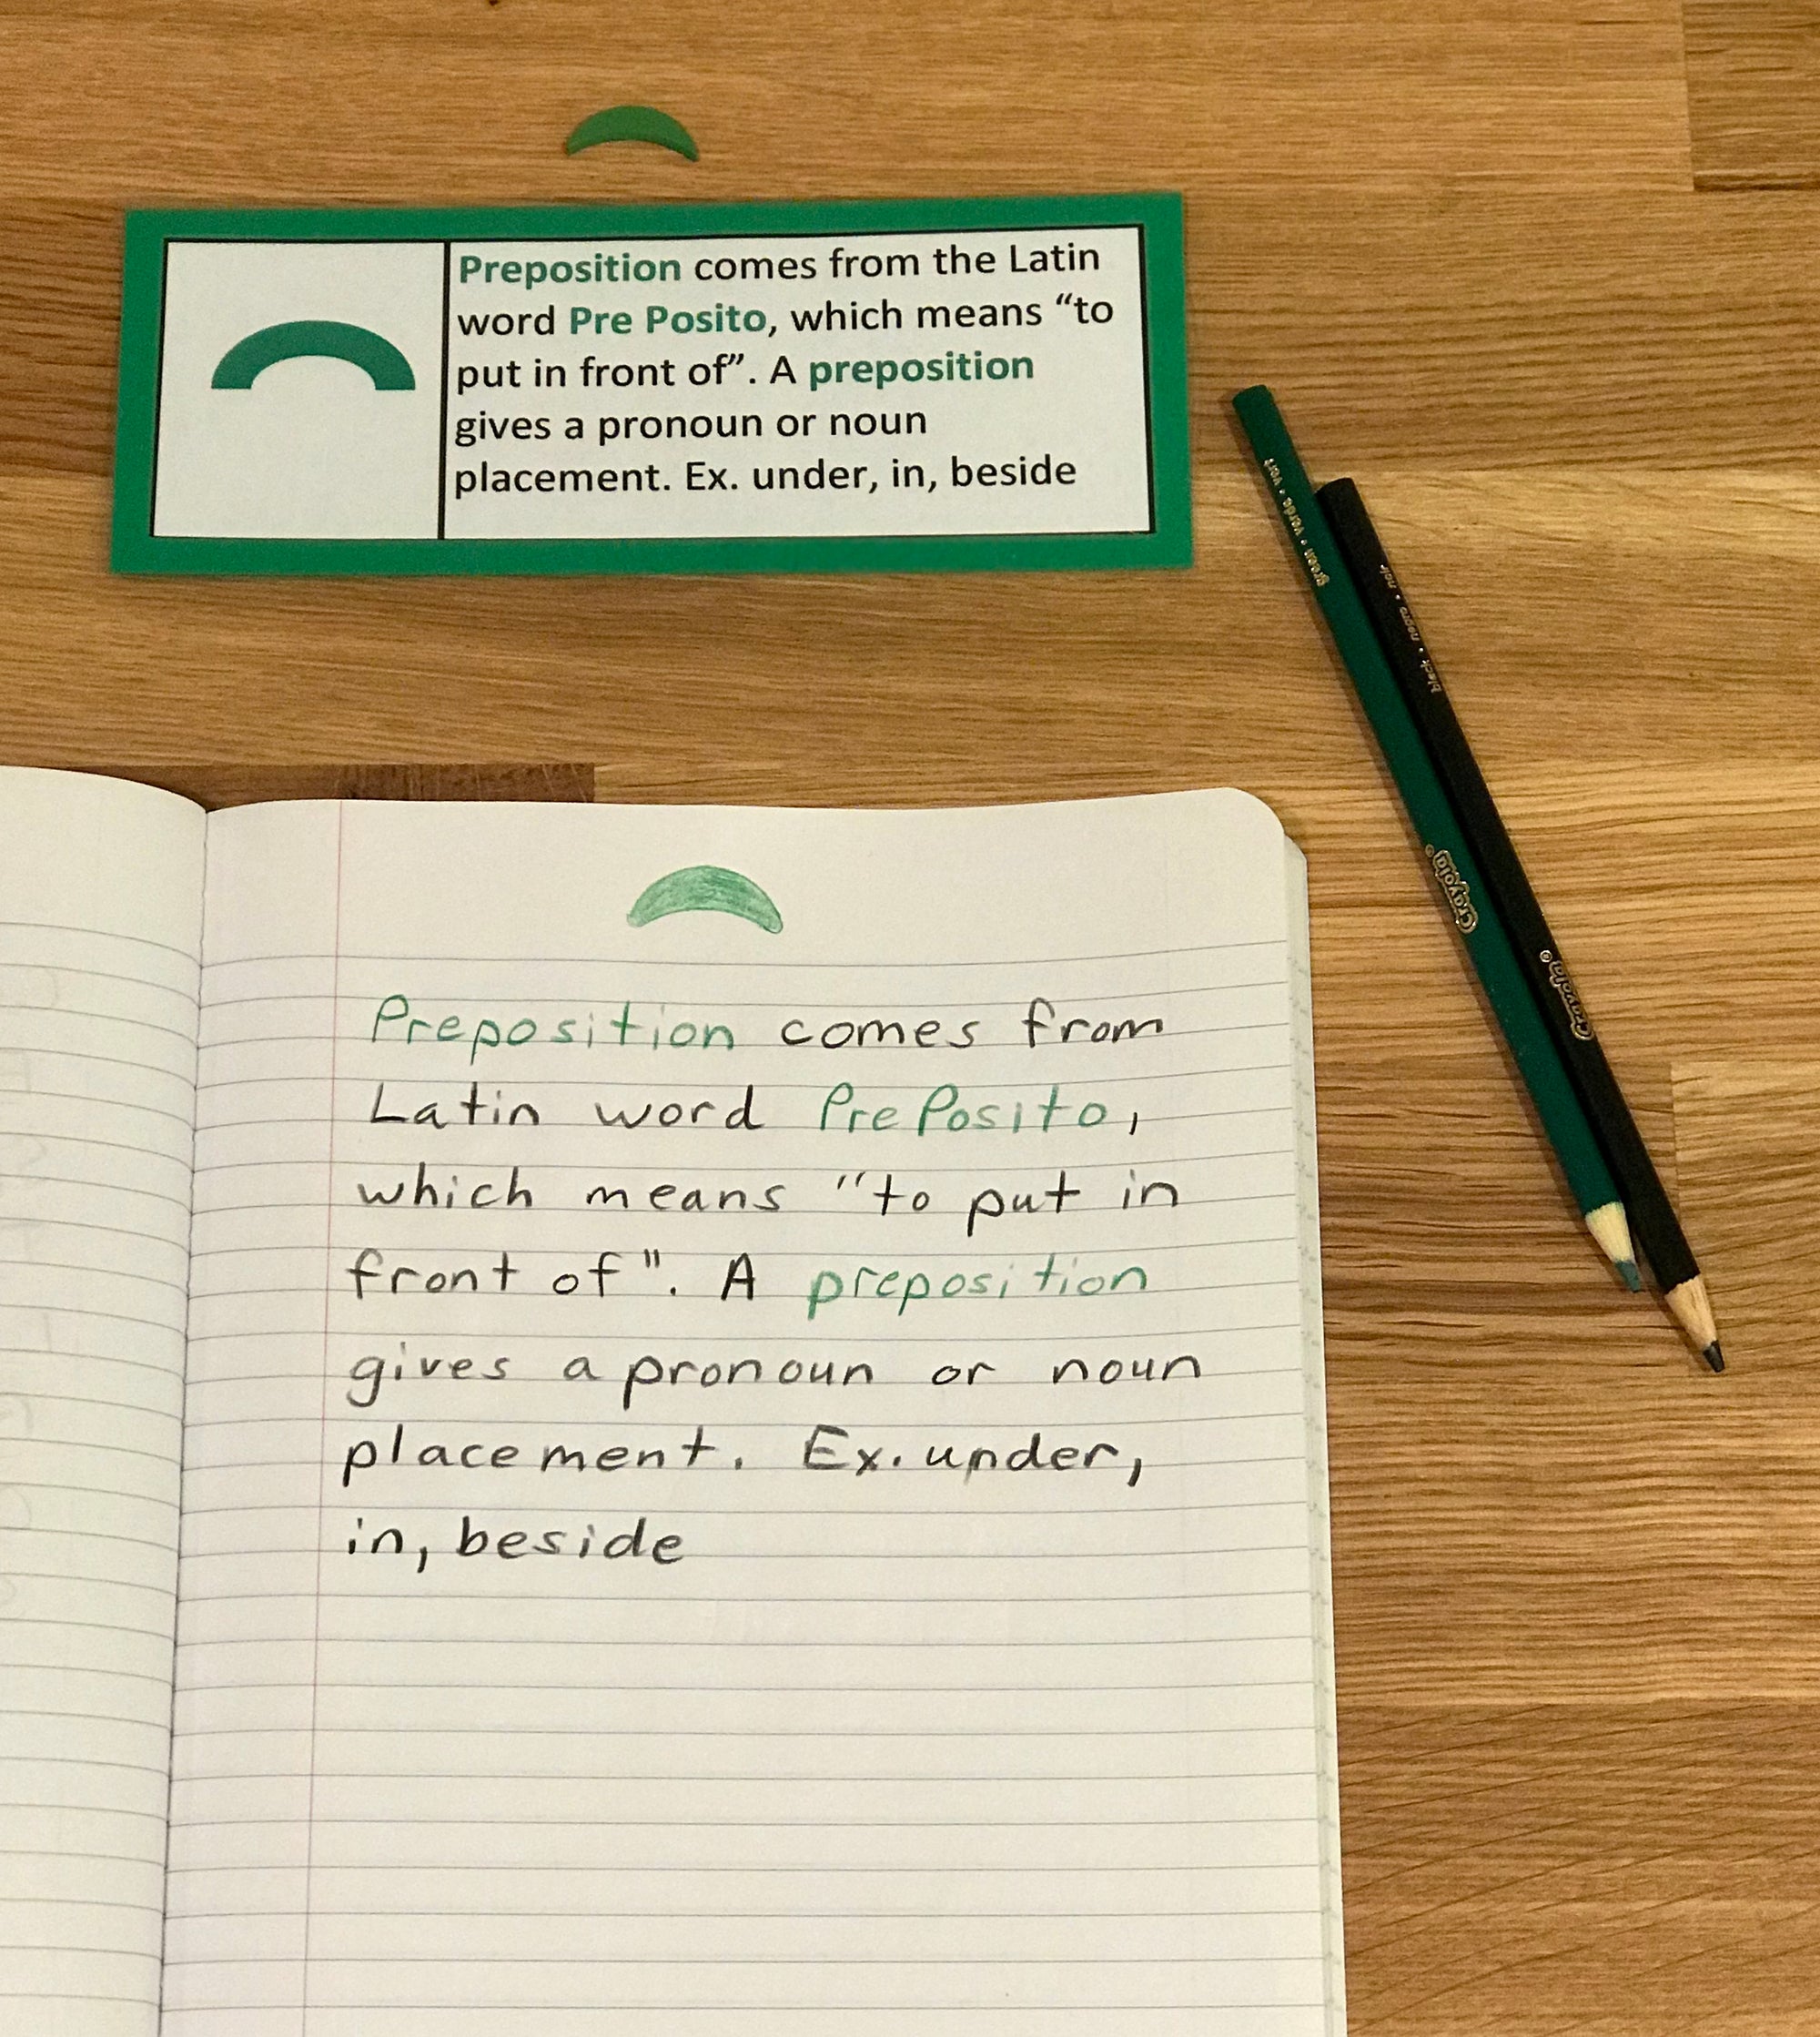 Preposition comes from the Latin
word Pre Posito, which means “to
put in front of”. A preposition
gives a pronoun or noun
placement. Ex. under, in, beside
green • verde • vert
black • negro • noir
Crayola®
Crayola®
Preposition comes from
Latin word Pre Posito,
which means "to put in
front of". A preposition
gives a pronoun or noun
placement. Ex. under,
in, beside